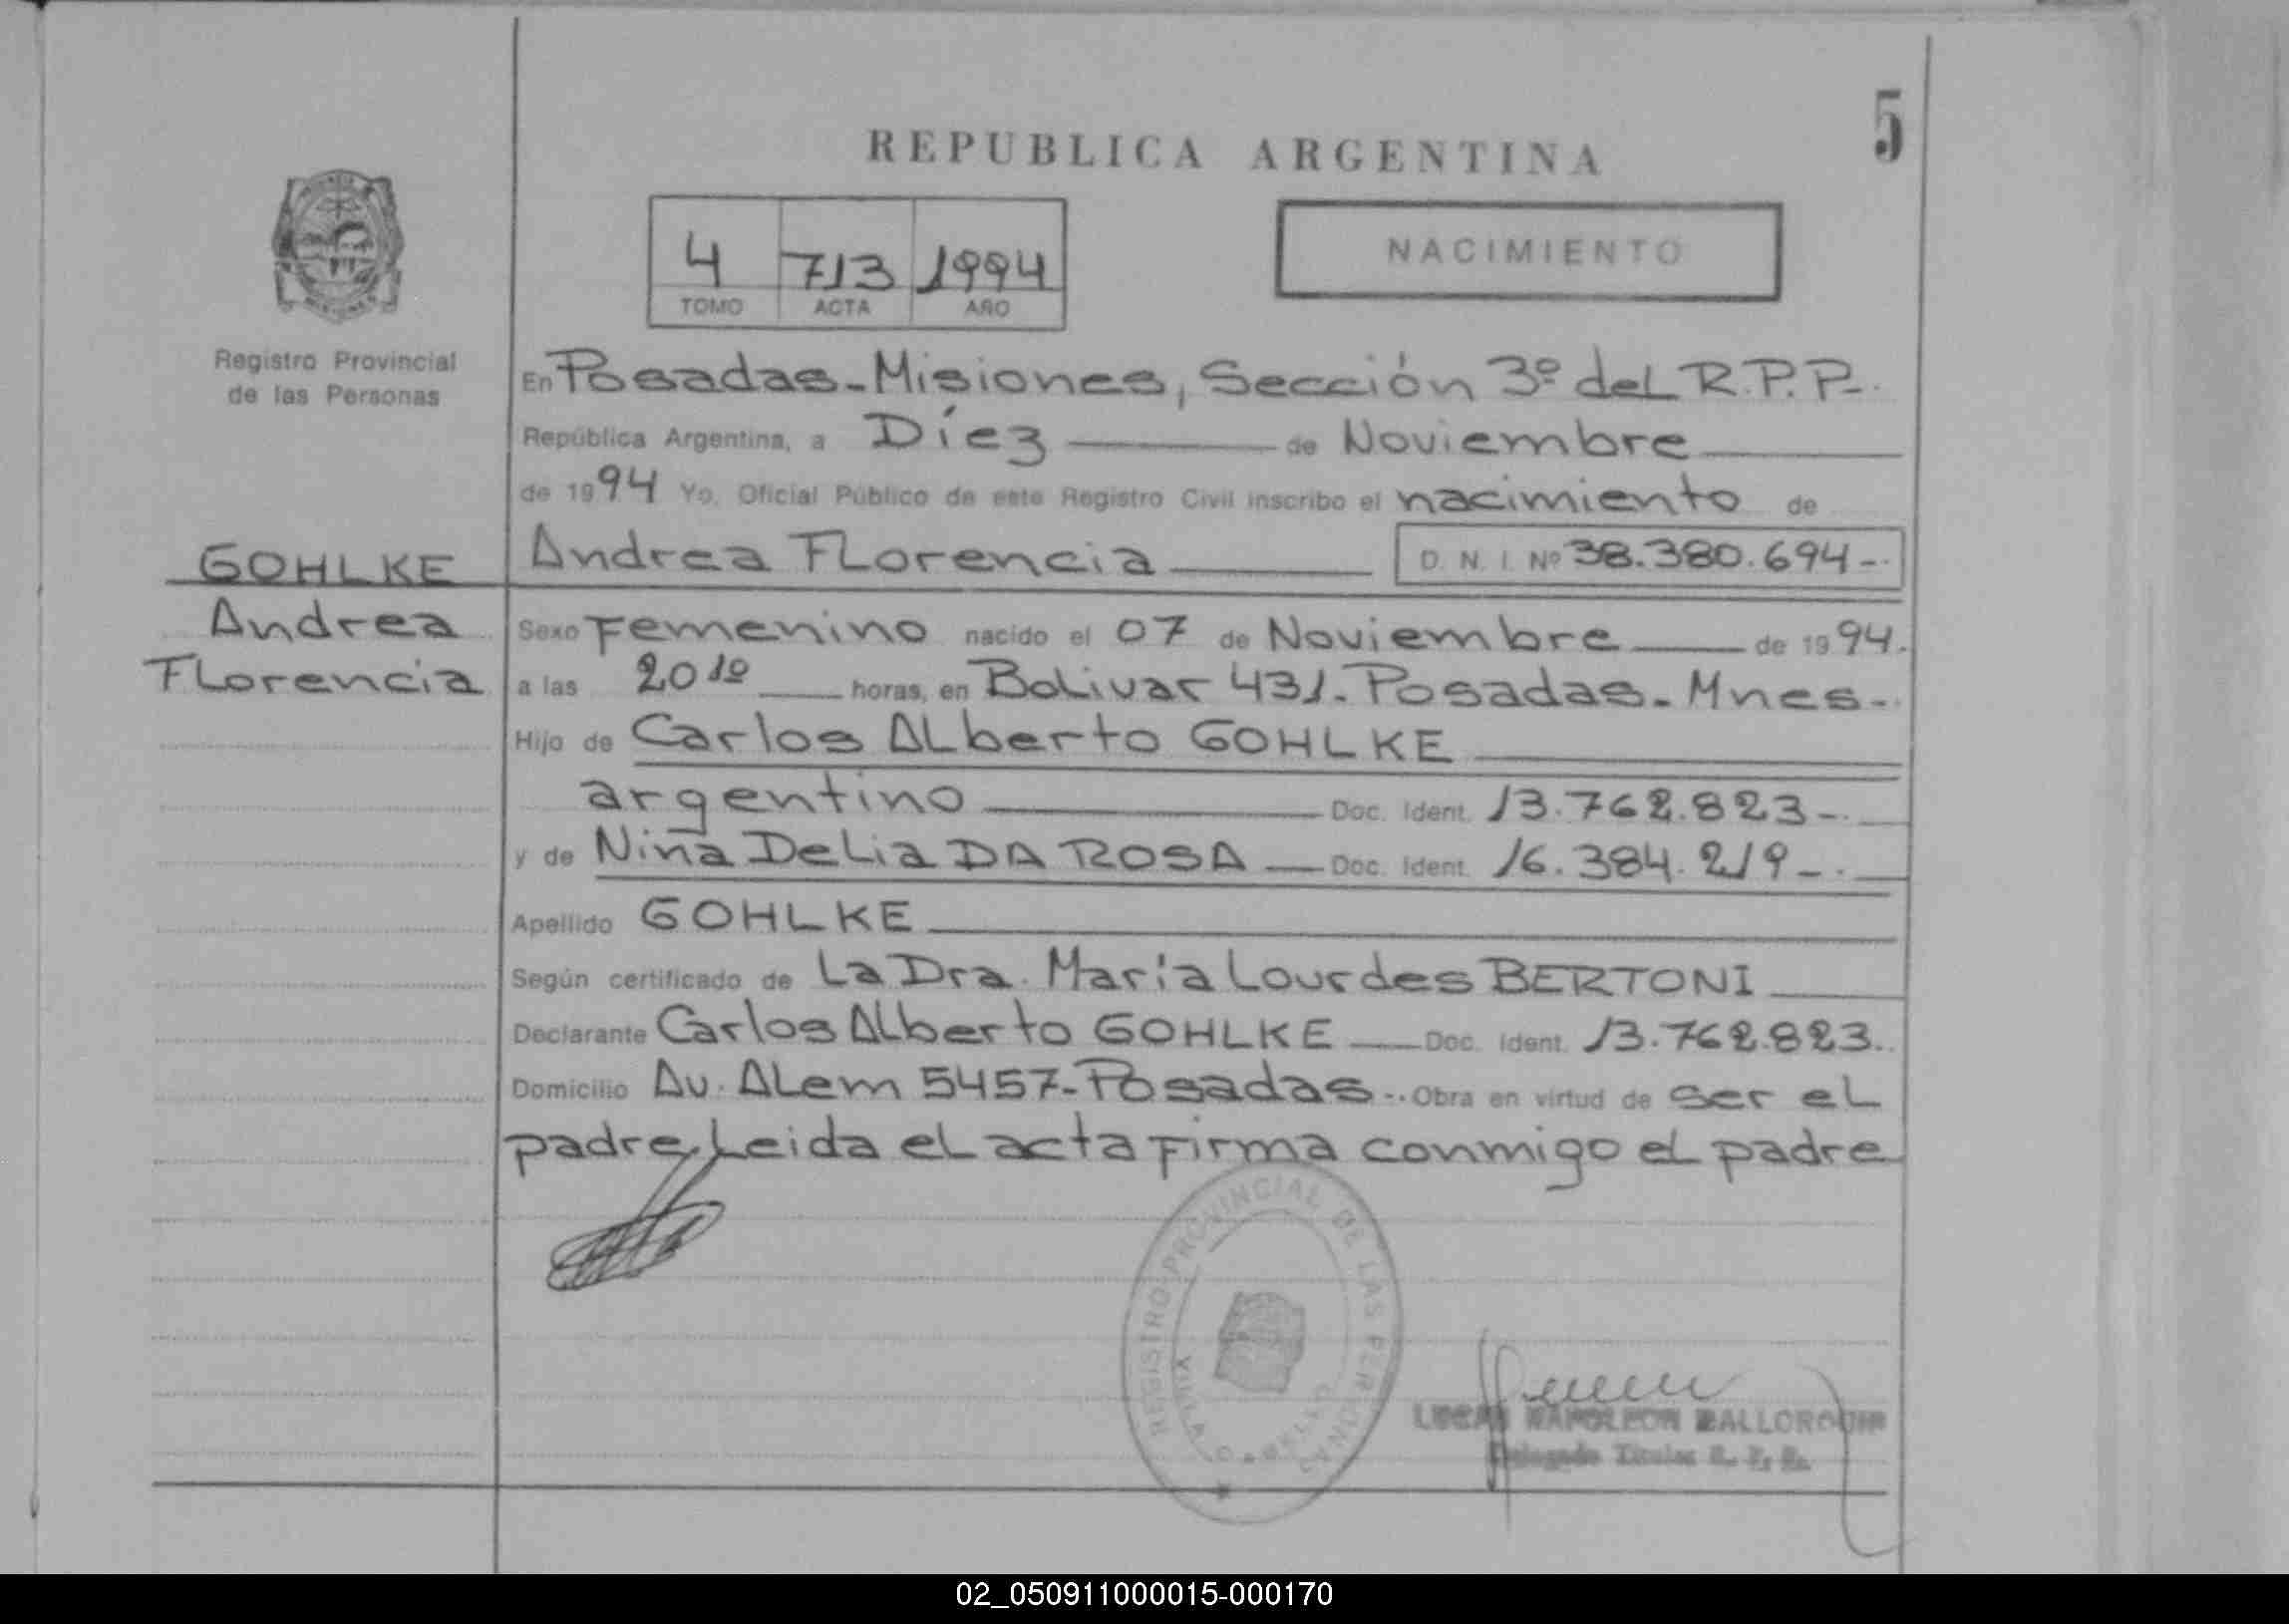 5
REPUBLICA ARGENTINA
NACIMIENTO
4 713 1994
TOMO ACTA AÑO
Registro Provincial
de las Personas
En Posadas-Misiones, Sección 3º del R.P.P-.
República Argentina, a Díez de Noviembre
de 1994 Yo, Oficial Público de este Registro Civil inscribo el nacimiento de
GOHLKE
Andrea
Florencia
Andrea Florencia D. N. I. Nº 38.380.694-.
Sexo Femenino nacido el 07 de Noviembre de 1994.
a las 20 10 horas, en Bolivar 431-Posadas-Mnes-.
Hijo de Carlos Alberto GOHLKE
argentino Doc. Ident. 13.762.823-.
y de Niña Delia DA ROSA Doc. Ident. 16.384.219-.
Apellido GOHLKE
Según certificado de La Dra. María Lourdes BERTONI
Declarante Carlos Alberto GOHLKE Doc. Ident. 13.762.823.
Domicilio Av. Alem 5457-Posadas-. Obra en virtud de ser el
padre, Leida el acta firma conmigo el padre
REGISTRO PROVINCIAL DE LAS PERSONAS
VILLA CABELLO
LUCAS NAPOLEON BALLORQUIN
Delegado Titular R. P. P.
02_050911000015-000170